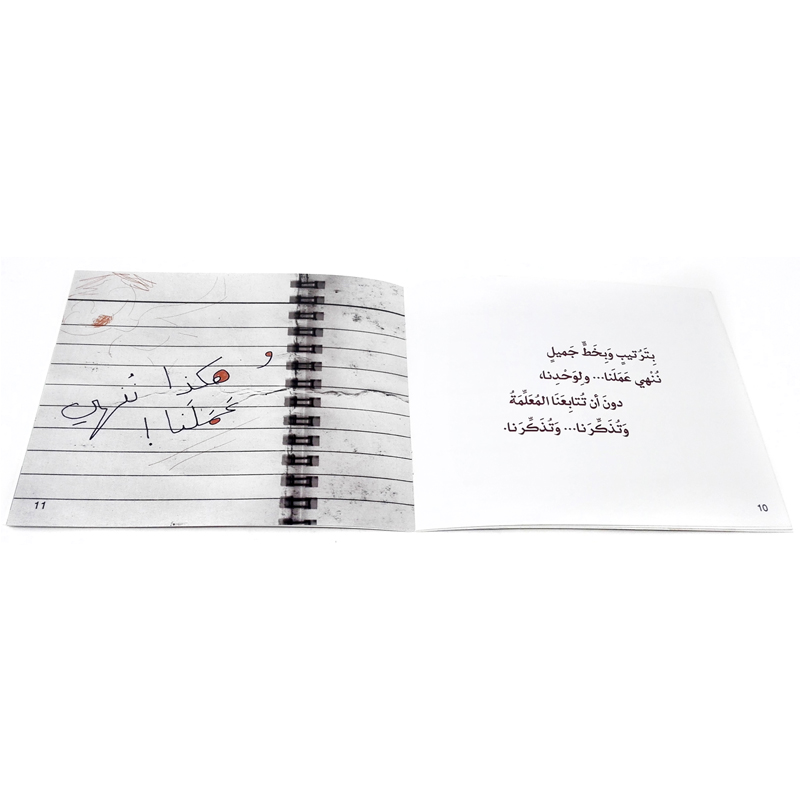 بِتَرْتيبٍ وَبِخَطٍّ جَميلٍ
نُنْهي عَمَلَنا... ولِوَحْدِنا،
دونَ أن تُتابِعَنَا المُعَلِّمَةُ
وَتُذَكِّرَنا... وَتُذَكِّرَنا.
10
و هكذا نُنهي
عَمَلَنا !
11